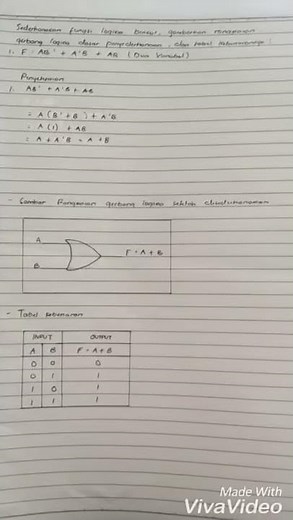 Sederhanakan fungsi logika berikut, gambarkan rangkaian
gerbang logika dasar penyederhanaan, dan tabel kebenarannya :
1. F = AB' + A'B + AB (Dua Variabel)
Penyelesaian
1. AB' + A'B + AB
= A (B' + B) + A'B
= A (1) + AB
= A + A'B = A + B
- Gambar Rangkaian gerbang logika setelah disederhanakan
A
B
F = A + B
- Tabel kebenaran
INPUT OUTPUT
A B F = A + B
0 0 0
0 1 1
1 0 1
1 1 1
Made With
VivaVideo